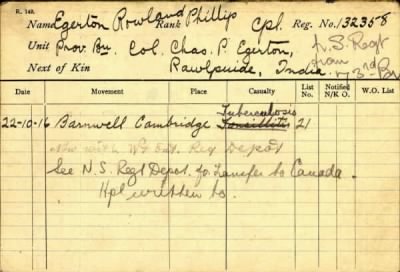 R. 149.
Name Egerton Rowland Phillip Rank Cpl. Reg. No. 132358
Unit Prov Bn. Col. Chas. P. Egerton, N. S. Regt
Next of Kin Rawlpinde, India. from 73rd Bn
Date Movement Place Casualty List No. Notified N/K O. W.O. List
Tuberculosis
22-10-16 Barnwell Cambridge Tonsillitis 21
Now with Ent. Reg Depot
See N. S. Regt Depot. for transfer to Canada.
Hpl written to.